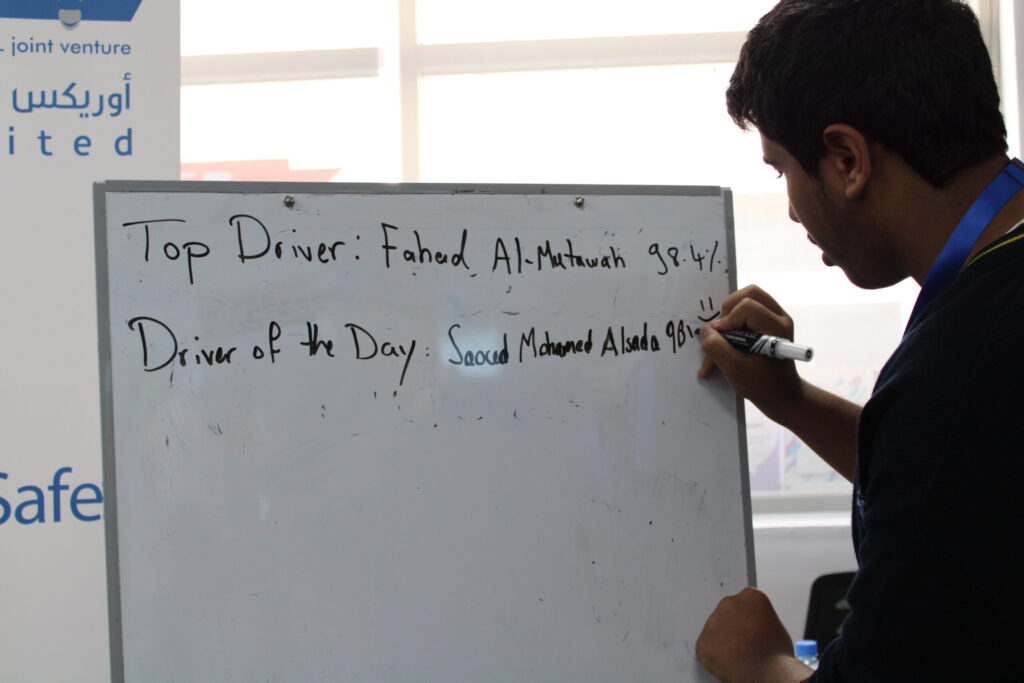 joint venture
أوريكس
ited
Safe
Top Driver: Fahad Al-Mutawah 98.4%
Driver of the Day: Saoud Mohamed Alsada 98%